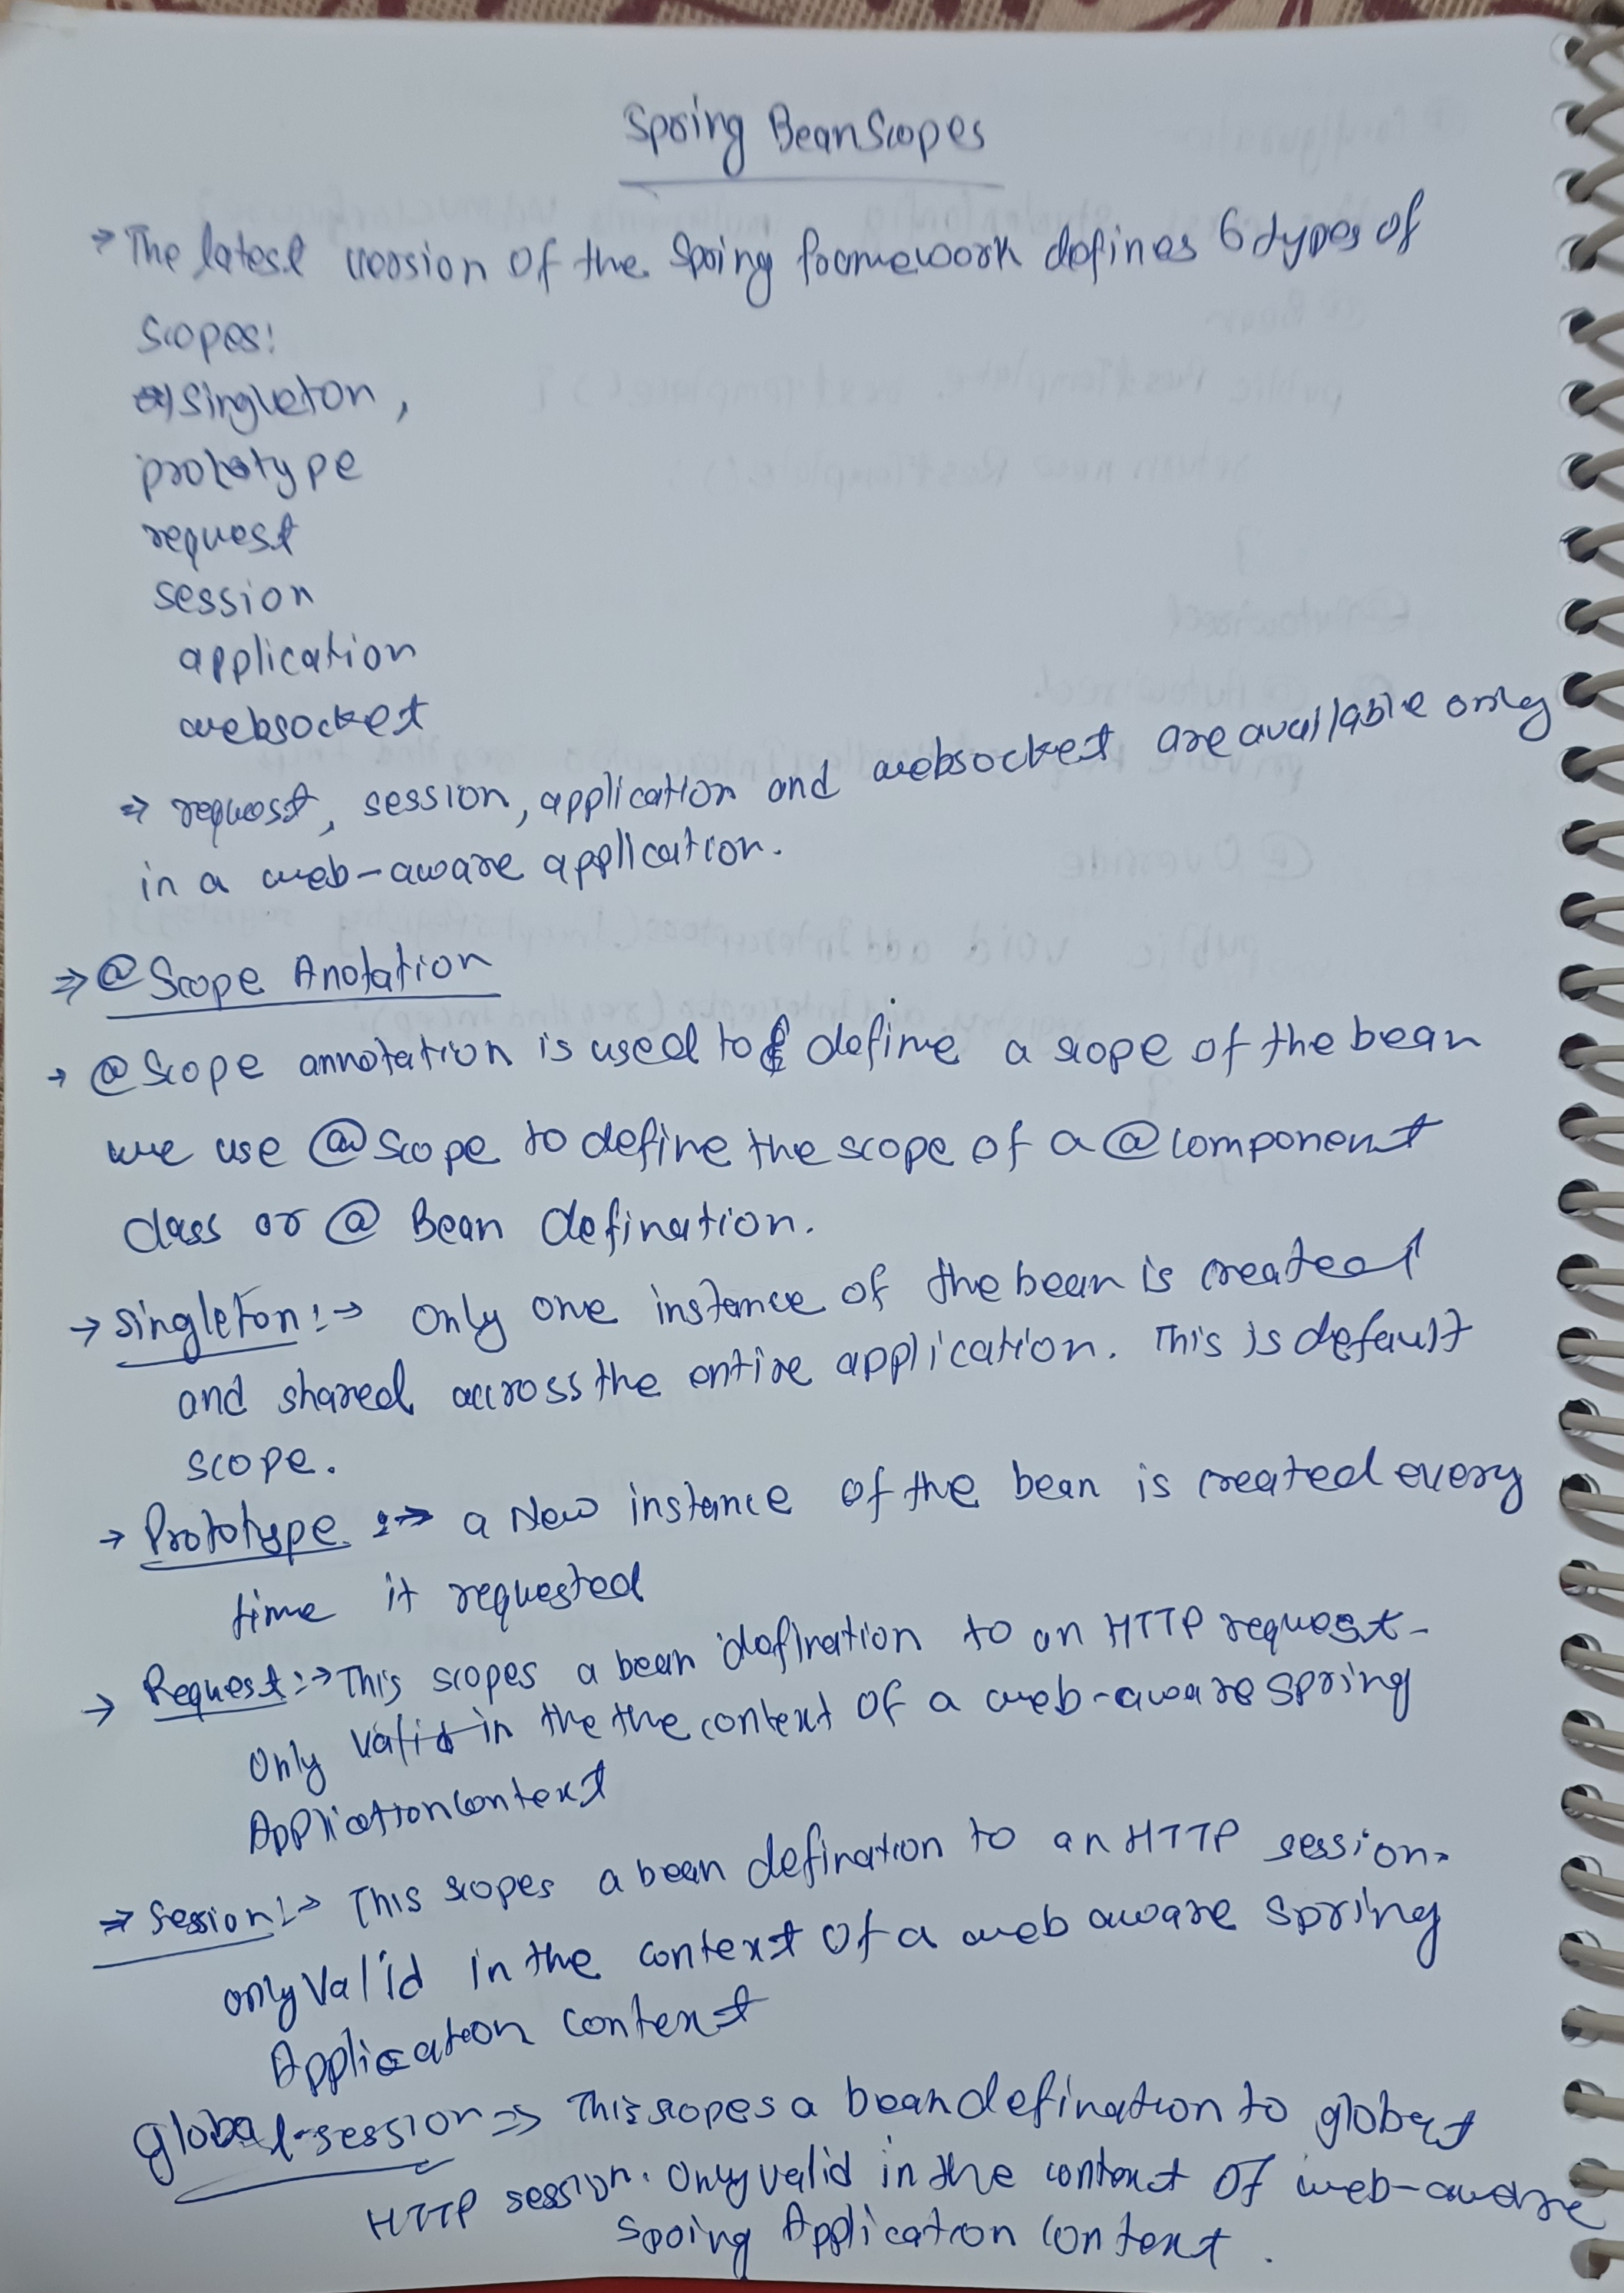 Spring Bean Scopes
→ The latest version of the Spring framework defines 6 types of
Scopes:
singleton,
prototype
request
session
application
websocket
⇒ request, session, application and websocket are available only
in a web-aware application.
⇒ @Scope Anotation
→ @Scope annotation is used to define a scope of the bean
we use @Scope to define the scope of a @component
class or @ Bean defination.
→ singleton :→ only one instance of the bean is created
and shared accross the entire application. This is default
scope.
→ Prototype :→ a New instance of the bean is created every
time it requested
→ Request :→ This scopes a bean defination to an HTTP request-
Only valid in the the context of a web-aware spring
Applicationcontext
⇒ Session :→ This scopes a bean defination to an HTTP session.
only valid in the context of a web aware spring
Application context
global-session ⇒ This scopes a bean defination to global
HTTP session. Only valid in the context of web-aware
Spring Application context.